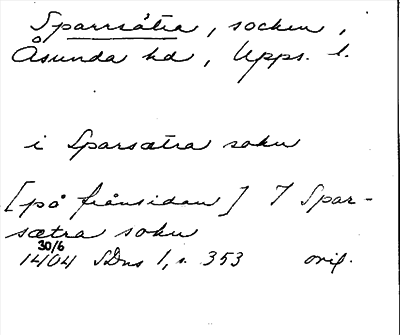 Sparrsätra, socken,
Åsunda hd, Upps. l.
i Sparsætra sokn
[på frånsidan] J Spar-
sætra sokn
30/6
1404 SDns 1, s. 353 orig.